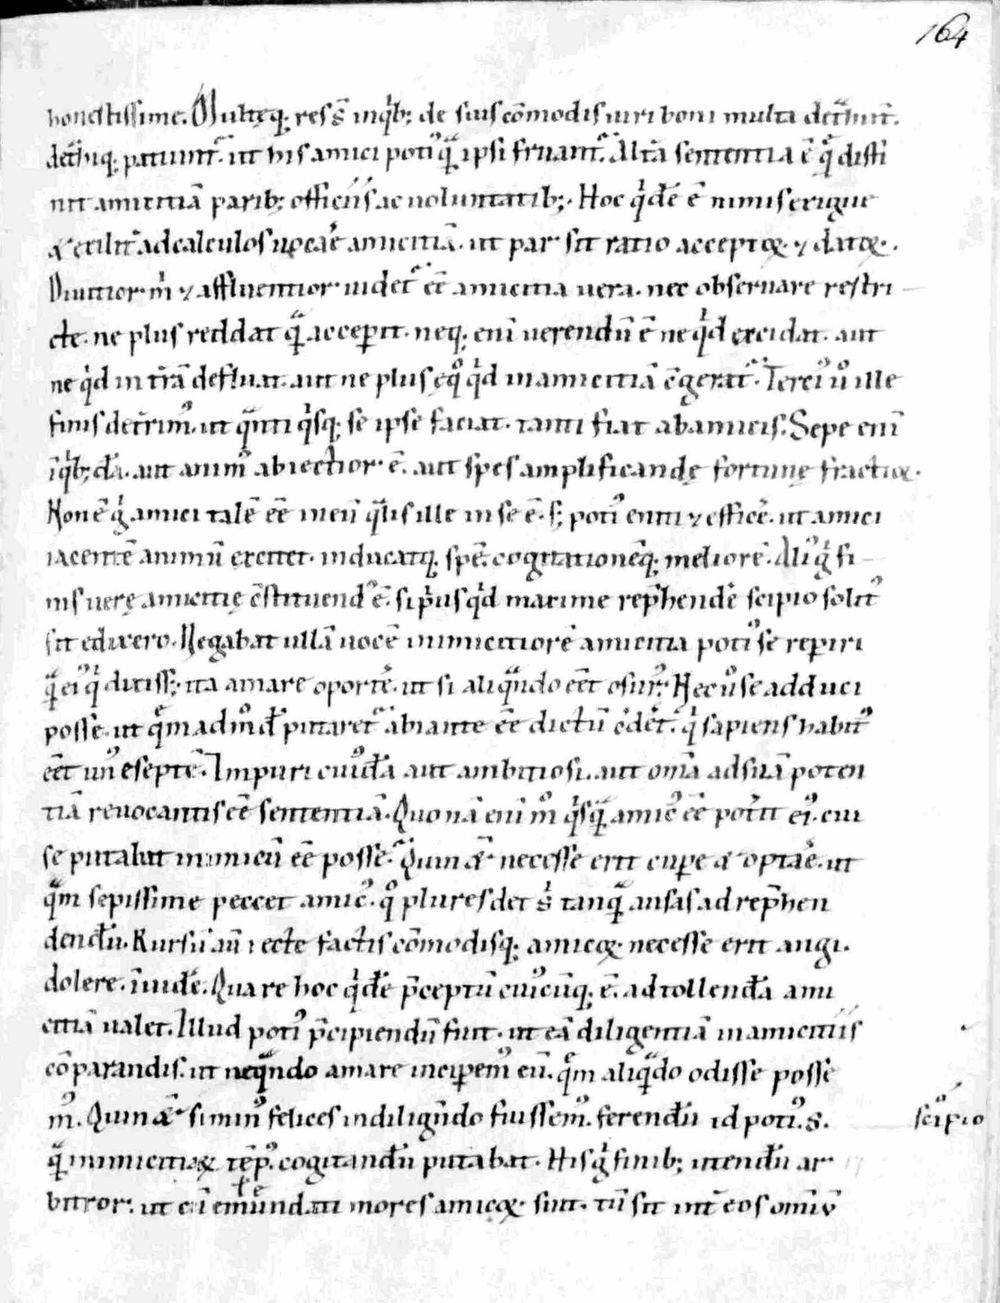 164
honestissime. Multęq; res s̄ inq̇b; de suis cōmodis uiri boni multa detħunt̄.
detħuq; patiunt̄. ut his amici poti᷒ q̄ᷓ ipsi fruant̄. Altā sententia ē q̄ᷓ diffi
nit amicitiā parib; officiis ac uoluntatib;. Hoc q̇dē ē nimis exigue
& exilit̄ ad calculos uocaē amicitiā. ut par sit ratio acceptoꝝ ⁊ datoꝝ.
Diuitior m̍ ⁊ affluentior uidet̄ eē amicitia uera. nec obseruare restri
cte. ne plus reddat q̄ᷓ acceꝑit. neq; eni᷒ uerendū ē ne q̇d excidat. aut
ne q̇d in t̄rā defluat. aut ne plus ęq̊ q̇d in amicitiā c̄gerat̄. Terci᷒ ů ille
finis det̄rim᷒. ut q̄ᷓnti q̇sq; se ipse faciat. tanti fiat ab amicis. Sepe enī
ī q̇b;dā. aut anim᷒ abiectior ē. aut spes amplificandę fortunę fractioꝝ.
Non ē g̍ amici talē eē ī eū q̄ᷓlis ille in se ē. s; poti᷒ eniti ⁊ efficē. ut amici
iacentē animū excitet. inducatq; spē. cogitationēq; meliorē. Ali᷒ g̍ fi
nis uerę amicitię c̄stituend᷒ ē. si p̍us q̇d maxime rep̄hendē scipio solit᷒
sit edixero. Negabat ullā uocē inimicitiorē amicitia poti᷒ se reꝑiri
q̄ᷓ ei᷒ q̇ dixiss;. ita amare oportē. ut si aliq̄ᷓndo eēt osur᷒. Nec ů se adduci
posse. ut q̊m adm̊dū putaret̄ a biante eē dictū c̊dēt. q̇ sapiens habit᷒
eēt un᷒ e septē. Impuri cui᷒dā aut ambitiosi. aut om̄ia ad suā poten
tiā reuocantis eē sententiā. Quo nā eni᷒ m᷒ q̇sq̄ᷓ amic᷒ eē pot̄it ei᷒. cui
se putabit inimicū eē posse. Quin & necesse erit cuꝑe & optaē. ut
q̄ᷓm sepissime peccet amic᷒. q̊ plures det s̍ tanq̄ᷓ ansas ad rep̄hen
dendū. Rursū aū recte factis cōmodisq; amicoꝝ necesse erit angi.
dolere. inuidē. Quare hoc q̇dē p̄ceptū cui᷒cūq; ē. ad tollendā ami
citiā ualet. Illud poti᷒ p̄cipiendū fuit. ut eā diligentiā in amicitiis
cōparandis. ut neq̄ᷓndo amare inciꝑem᷒ eū. q̊m aliq̄ᷓdo odisse posse
m᷒. Quin & si min᷒ felices in diligūdo fuissem᷒. ferendū id poti᷒. S.
scipio
q̄ᷓ inimicitiaꝝ tēp᷒ cogitandū putabat. His g̍ finib; utendū ar
bitror. ut cū emendati mores amicoꝝ sint. tū sit int̄ eos omiū